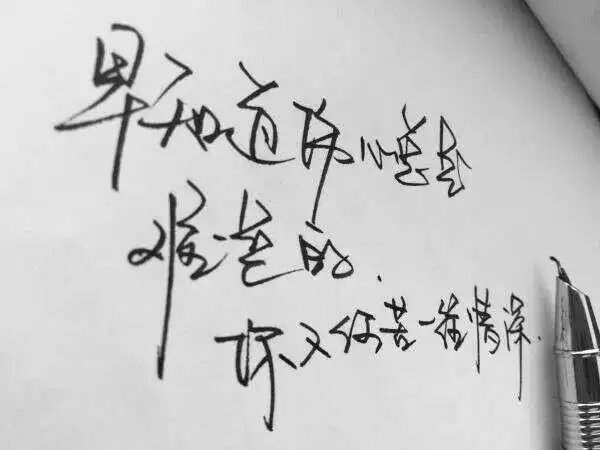 早知道伤心总是
难免的.
你又何苦一往情深.